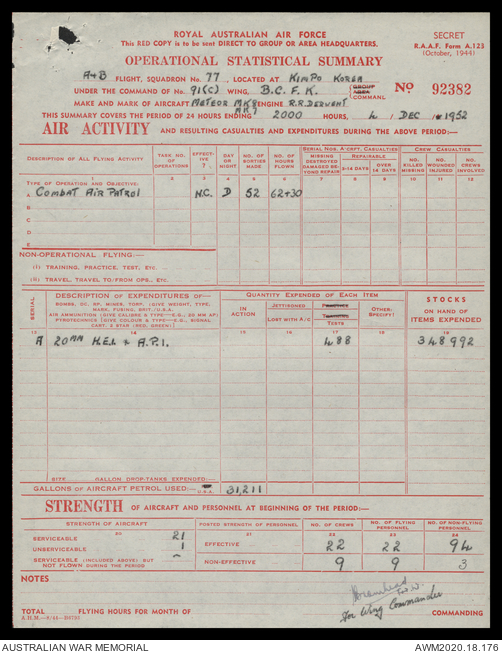 ROYAL AUSTRALIAN AIR FORCE
This RED COPY is to be sent DIRECT TO GROUP OR AREA HEADQUARTERS.
SECRET
R.A.A.F. Form A.123
(October, 1944)
OPERATIONAL STATISTICAL SUMMARY
A+B FLIGHT, SQUADRON No. 77, LOCATED AT KIMPO KOREA
UNDER THE COMMAND OF No. 91(C) WING, B.C.F.K. GROUP AREA COMMAND.
No 92382
MAKE AND MARK OF AIRCRAFT METEOR MK8 MK7 ENGINE R.R. DERWENT
THIS SUMMARY COVERS THE PERIOD OF 24 HOURS ENDING 2000 HOURS, 4 DEC 1952
AIR ACTIVITY AND RESULTING CASUALTIES AND EXPENDITURES DURING THE ABOVE PERIOD:—
DESCRIPTION OF ALL FLYING ACTIVITY
TASK NO. OF OPERATIONS
EFFECTIVE ?
DAY OR NIGHT
NO. OF SORTIES MADE
NO. OF HOURS FLOWN
SERIAL NOS. A'CRFT. CASUALTIES
MISSING DESTROYED DAMAGED BEYOND REPAIR
REPAIRABLE
2-14 DAYS
OVER 14 DAYS
CREW CASUALTIES
NO. KILLED MISSING
NO. WOUNDED INJURED
NO. CREWS INVOLVED
1 2 3 4 5 6 7 8 9 10 11 12
TYPE OF OPERATION AND OBJECTIVE:
A COMBAT AIR PATROL N.C. D 52 62+30
B
C
D
E
NON-OPERATIONAL FLYING:—
(I) TRAINING, PRACTICE, TEST, ETC.
(II) TRAVEL, TRAVEL TO/FROM OPS., ETC.
SERIAL
DESCRIPTION OF EXPENDITURES OF—
BOMBS, DC, RP, MINES, TORP. (GIVE WEIGHT, TYPE, MARK, FUSING, BRIT./U.S.A.
AIR AMMUNITION (GIVE CALIBRE & TYPE—E.G., 20 MM AP)
PYROTECHNICS (GIVE COLOUR & TYPE—E.G., SIGNAL CART. 2 STAR (RED, GREEN))
QUANTITY EXPENDED OF EACH ITEM
IN ACTION
JETTISONED
LOST WITH A/C
PRACTICE
TRAINING
TESTS
OTHER: SPECIFY!
STOCKS
ON HAND OF ITEMS EXPENDED
13 14 15 16 17 18 19
A 20MM H.E.I. + A.P.I. 488 348992
SIZE GALLON DROP-TANKS EXPENDED:—
GALLONS OF AIRCRAFT PETROL USED:— U.S.A. 31,211
STRENGTH OF AIRCRAFT AND PERSONNEL AT BEGINNING OF THE PERIOD:—
STRENGTH OF AIRCRAFT
POSTED STRENGTH OF PERSONNEL
NO. OF CREWS
NO. OF FLYING PERSONNEL
NO. OF NON-FLYING PERSONNEL
20 21 22 23 24
SERVICEABLE 21
UNSERVICEABLE 1
SERVICEABLE (INCLUDED ABOVE) BUT NOT FLOWN DURING THE PERIOD -
EFFECTIVE 22 22 94
NON-EFFECTIVE 9 9 3
NOTES
for Wing Commander
TOTAL FLYING HOURS FOR MONTH OF
COMMANDING
AUSTRALIAN WAR MEMORIAL
AWM2020.18.176